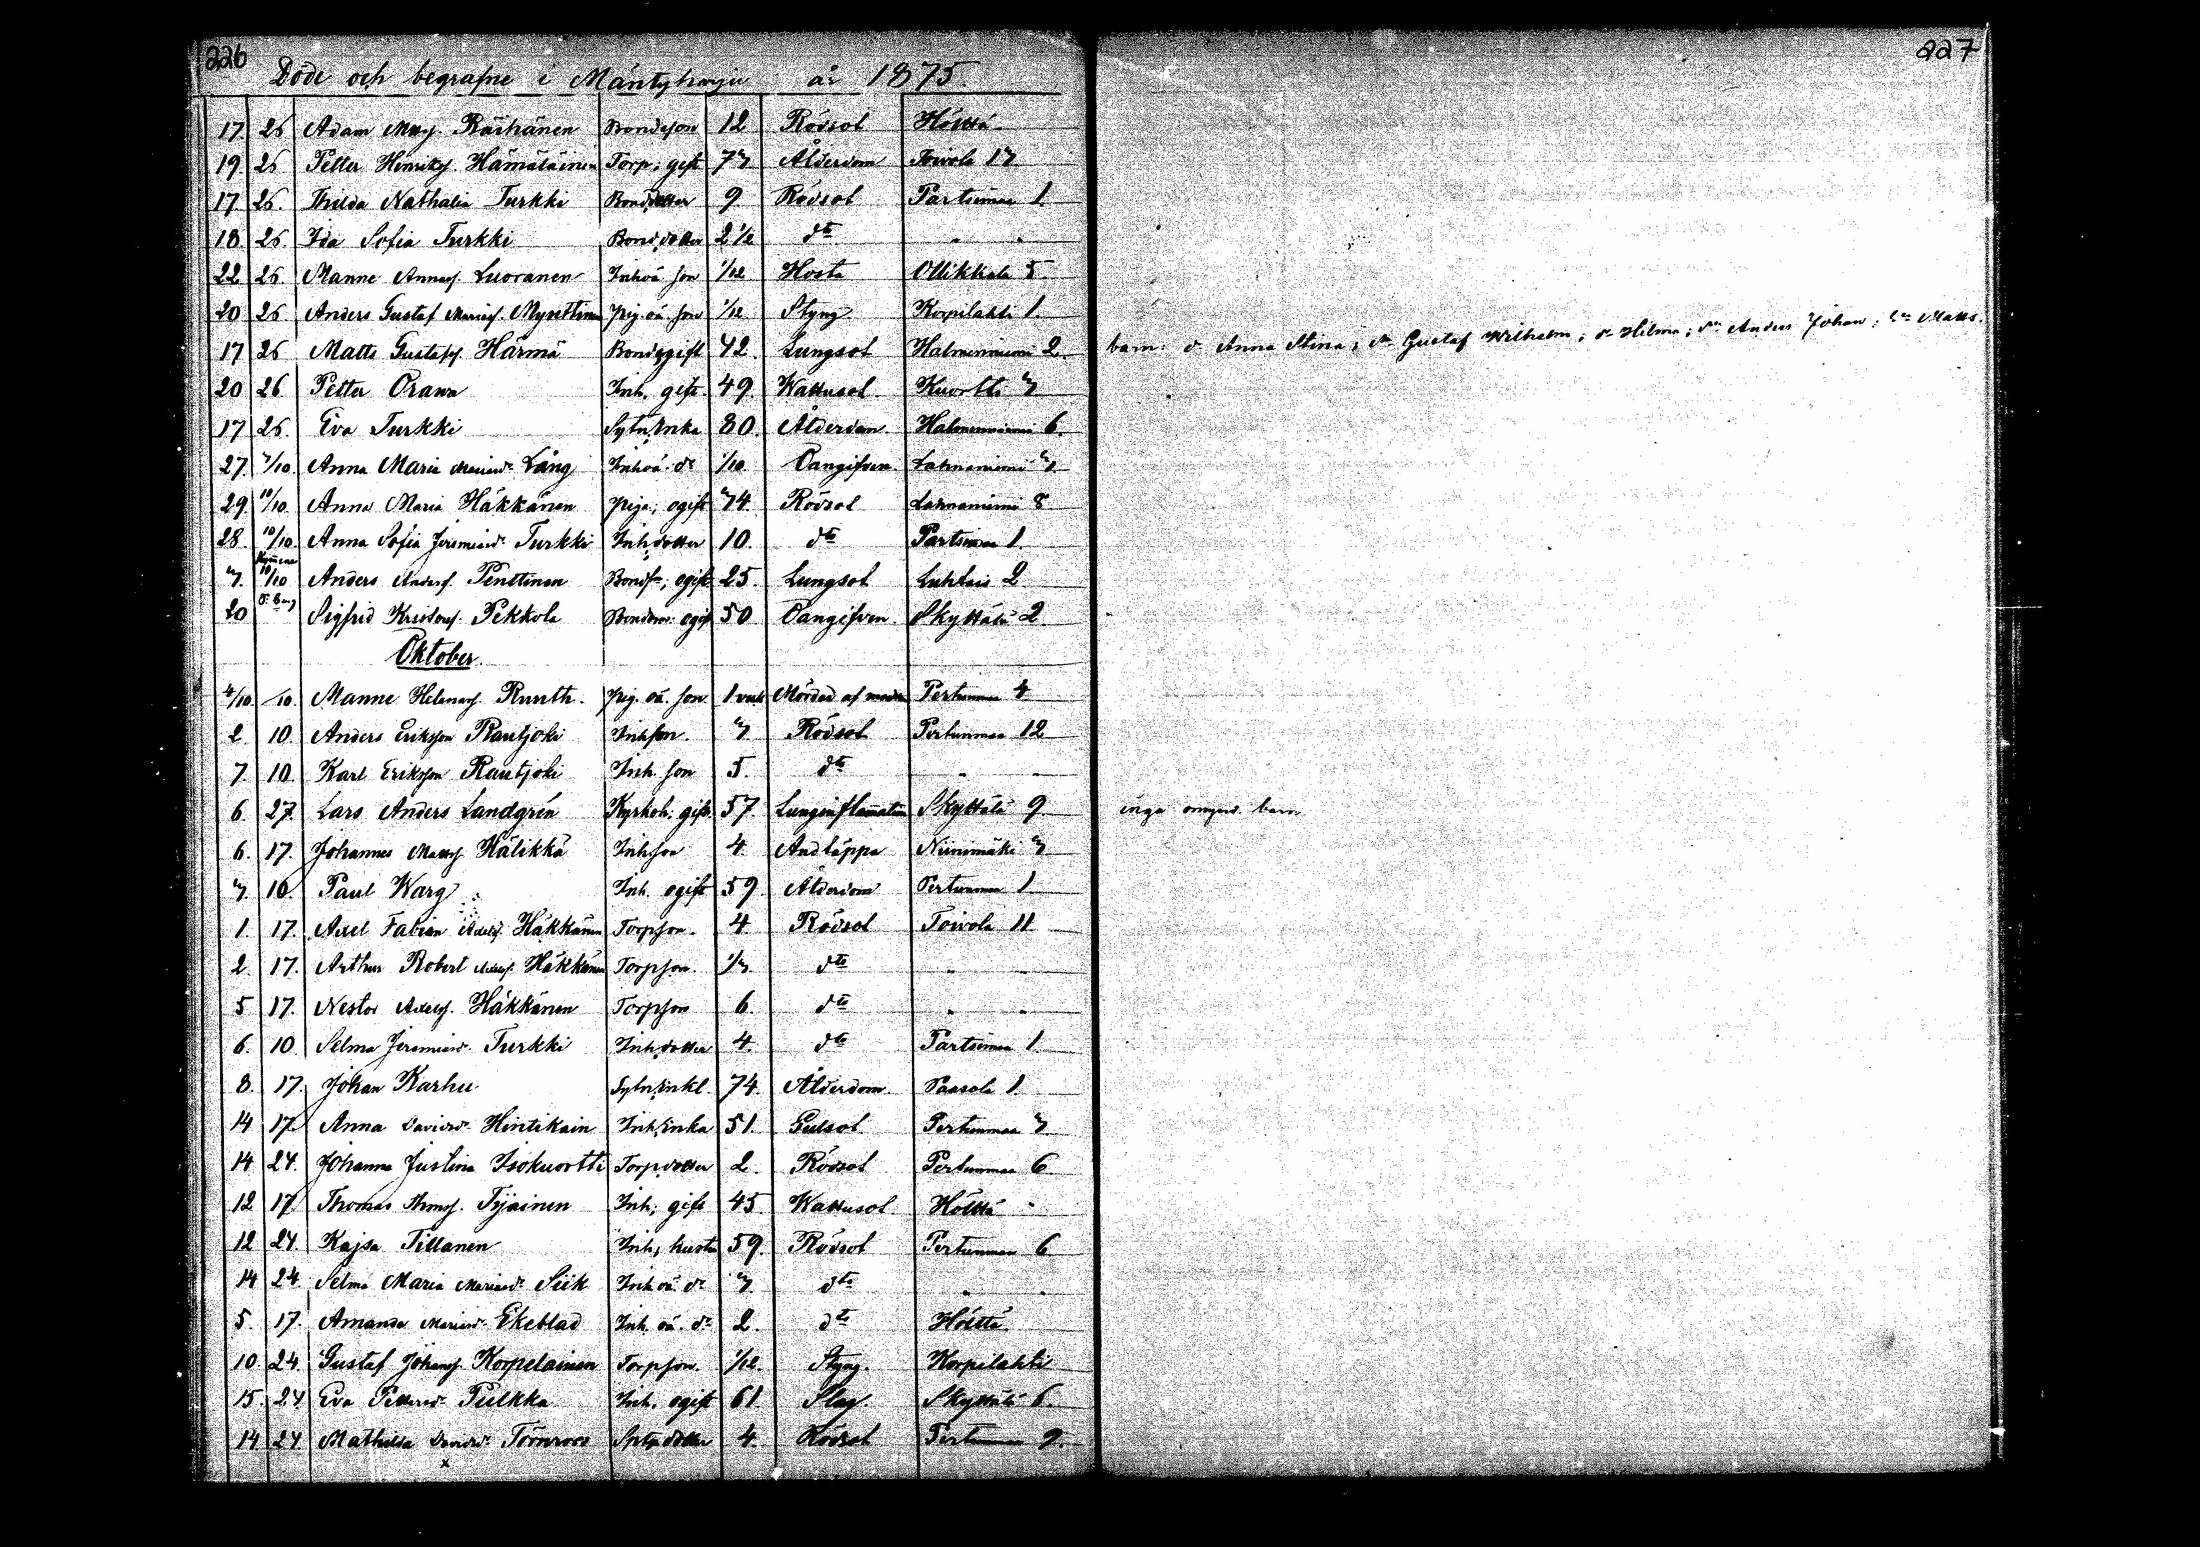 226
227
Döde och begrafne i Mäntyharju år 1875.
17. 26 Adam Matts. Räsänen Bondeson 12 Rödsot Hölttä
19. 26. Petter Henriks. Hämäläinen Torp. gift 77 Ålderdom Toivola 17
17 26. Hilda Nathalia Turkki Bond.dotter 9 Rödsot Partsimaa 1.
18. 26. Ida Sofia Turkki Bond.dotter 2 1/2 dto " "
22 26. Manne Annas. Luoranen Inh.oä. son 1/12 Hosta Ollikkala 5.
20 26. Anders Gustaf Marias. Mynttinen Pig. oä son 1/12 Styng Korpilahti 1.
17 26 Matts Gustafs. Härmä Bond.gift 42. Lungsot Halmeniemi 2. barn: dr Anna Stina; sn Gustaf Wilhelm; dr Hilma; sn Anders Johan; sn Matts.
20 26 Petter Orawa Inh. gift. 49. Wattusot Kuortti 7
17 26. Eva Turkki Sytn.Enka 80. Ålderdom. Halmeniemi 6.
27. 7/10. Anna Maria Mariasdr Lång Inh.oä. dr 1/10 Oangifven Lahnaniemi 7
29. 10/10. Anna Maria Häkkänen Piga, ogift 74. Rödsot Lahnaniemi 8
28. 10/10. Anna Sofia Jeremiasdr Turkki Inh.dotter 10. dto Partsimaa 1.
7. 10/10 Anders Anders. Penttinen Bondsn, ogift 25. Lungsot Luhtais 2
20 Sigfrid Pekkola ogift 50 Oangifven. Skyttälä 2
Oktober.
4/10. /10. Manne Helenas. Ruuth. Pig. oä. son 1 veck Mördad af modren Pertunmaa 4
2. 10. Anders Eriksson Rautjoki Inh.son. 7. Rödsot Pertunmaa 12
7. 10. Karl Eriksson Rautjoki Inh. son 5. dto " "
6. 27. Lars Anders Landgrén Kyrkoh. gift. 57. Lunginflamation Skyttälä 9. inga omynd. barn
6. 17. Johannes Matts. Hälikkä Inh.son 4. Andtäppa Niinimäki 7
7. 10. Paul Warg Inh. ogift 59. Ålderdom Pertunmaa 1
1. 17. Axel Fabian Axels. Häkkänen Torp.son. 4. Rödsot Toivola 11
2. 17. Arthur Robert Axels. Häkkänen Torp.son. 1/7. dto " "
5 17. Nestor Axels. Häkkänen Torp.son 6. dto " "
6. 10. Selma Jeremiasdr Turkki Inh.dotter 4. dto Partsimaa 1.
8. 17. Johan Karhu Sytn.Enkl. 74. Ålderdom. Paasola 1.
14 17. Anna Davidsdr Hintikain Inh.Enka 51. Gulsot Pertunmaa 7
14 24. Johanna Justina Isokuortti Torp.dotter 2. Rödsot Pertunmaa 6.
12 17. Thomas Thoms. Tyjäinen Inh, gift 45 Wattusot Hölttä "
12 24. Kajsa Tillanen Inh, hustru 59. Rödsot Pertunmaa 6
14 24. Selma Maria Mariasdr Siik Inh. oä. dr 7. dto " "
5. 17. Amanda Mariasdr Ekeblad Inh. oä. dr 2. dto Hölttä.
10. 24. Gustaf Johans. Korpelainen Torp.son. 1/12. Styng. Korpilahti
15. 24 Eva Pettersdr Pulkka Inh. ogift 61. Slag. Skyttälä 6.
14 24. Mathilda Davidsdr Törnroos dotter 4. Rödsot Pertunmaa 9.
x